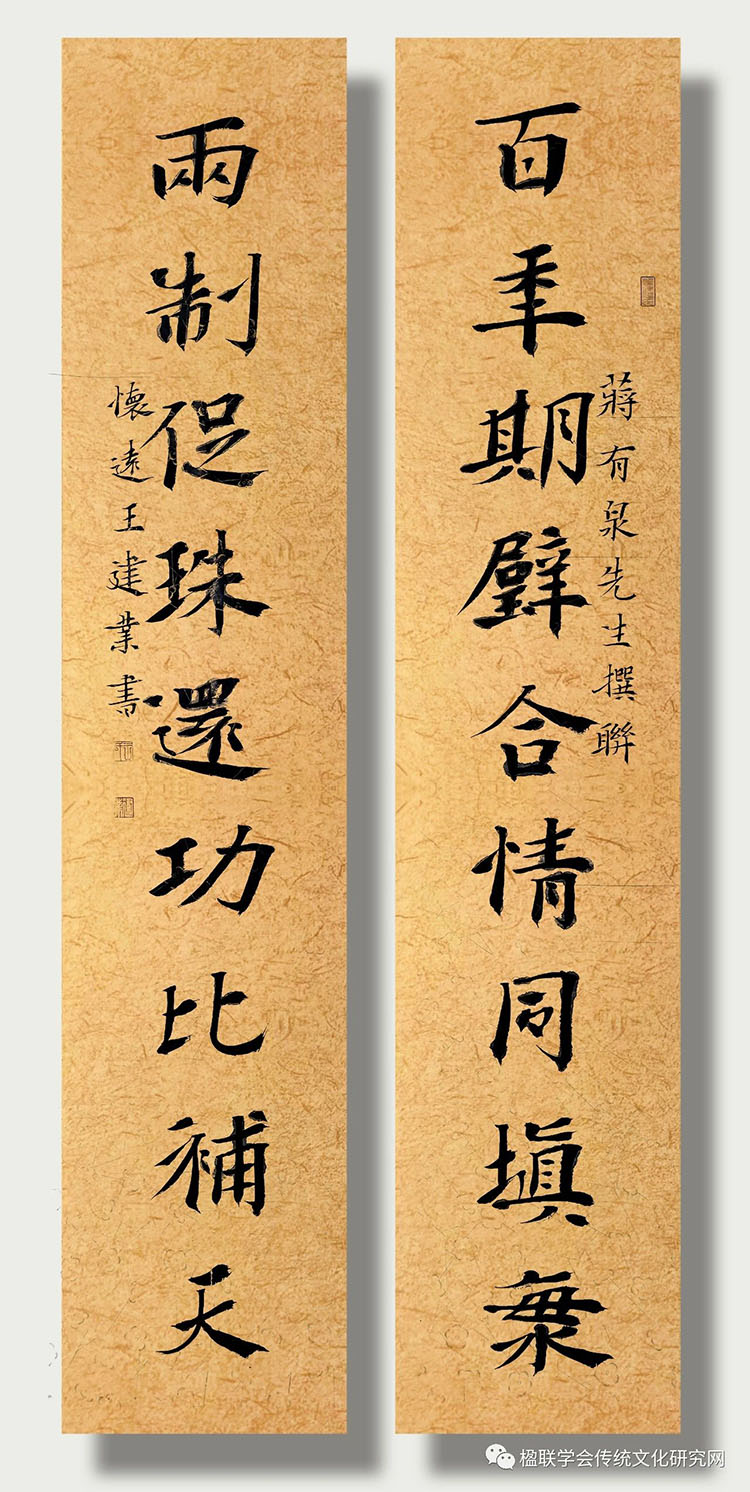 百年期璧合情同填海
蔣有泉先生撰聯
兩制促珠還功比補天
懷遠王建業書
楹联学会传统文化研究网